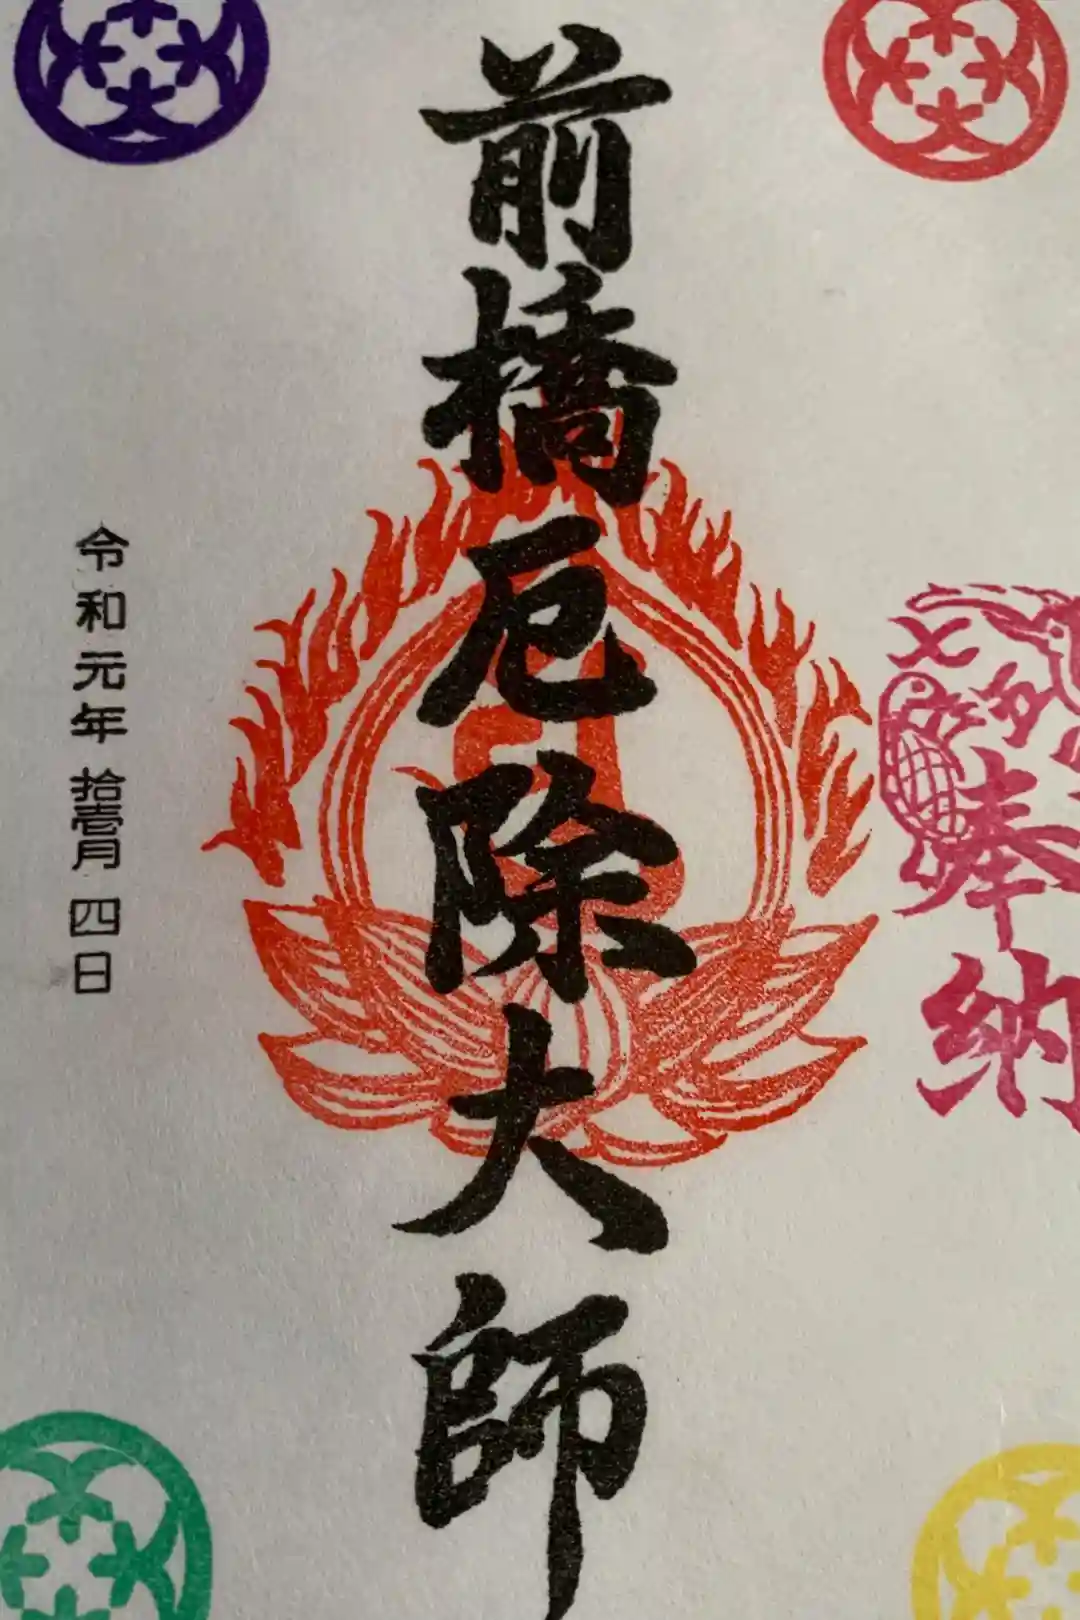 奉納
前橋厄除大師
令和元年拾壱月四日